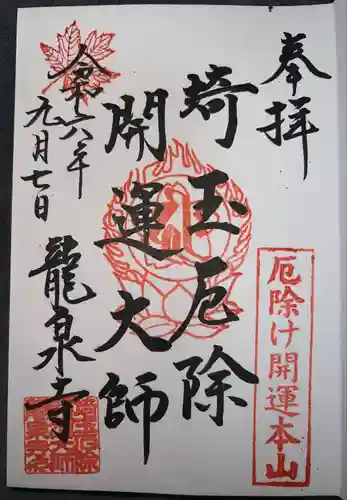 奉拝
厄除け開運本山
埼玉厄除
開運大師
令和六年
九月七日
龍泉寺